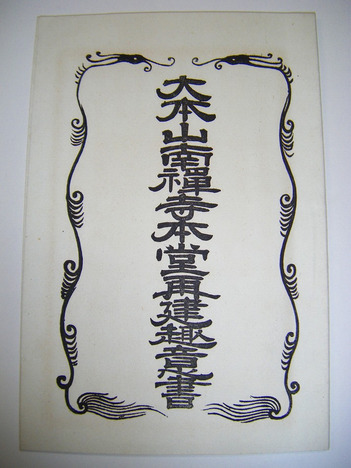 大本山南禪寺本堂再建趣意書